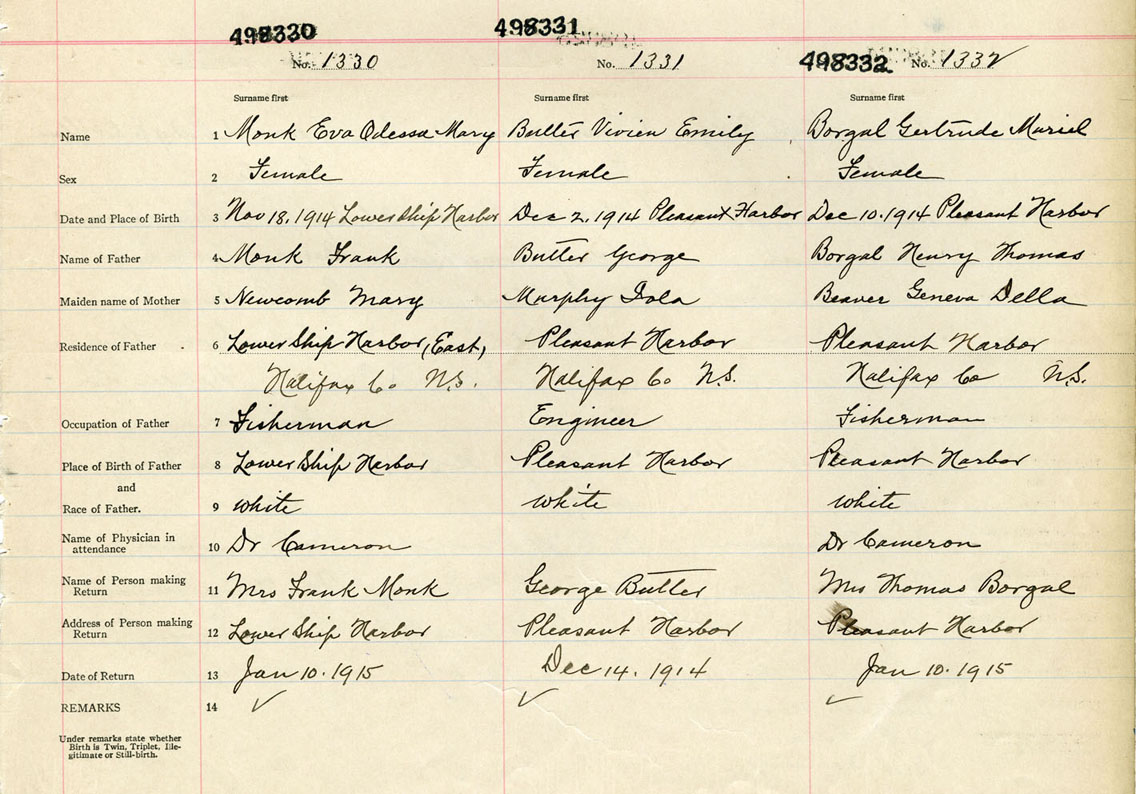 498330 498331 498332
No. 1330 No. 1331 No. 1332
Surname first Surname first Surname first
Name 1 Monk Eva Odessa Mary Butler Vivien Emily Borgal Gertrude Muriel
Sex 2 Female Female Female
Date and Place of Birth 3 Nov 18, 1914 Lower Ship Harbor Dec 2, 1914 Pleasant Harbor Dec 10. 1914 Pleasant Harbor
Name of Father 4 Monk Frank Butler George Borgal Henry Thomas
Maiden name of Mother 5 Newcomb Mary Murphy Iola Beaver Geneva Della
Residence of Father 6 Lower Ship Harbor, (East) Pleasant Harbor Pleasant Harbor
Halifax Co N.S. Halifax Co N.S. Halifax Co N.S.
Occupation of Father 7 Fisherman Engineer Fisherman
Place of Birth of Father 8 Lower Ship Harbor Pleasant Harbor Pleasant Harbor
and
Race of Father. 9 White White White
Name of Physician in
attendance 10 Dr Cameron Dr Cameron
Name of Person making
Return 11 Mrs Frank Monk George Butler Mrs Thomas Borgal
Address of Person making
Return 12 Lower Ship Harbor Pleasant Harbor Pleasant Harbor
Date of Return 13 Jan 10. 1915 Dec 14. 1914 Jan 10. 1915
REMARKS 14 ✓ ✓ ✓
Under remarks state whether
Birth is Twin, Triplet, Ille-
gitimate or Still-birth.